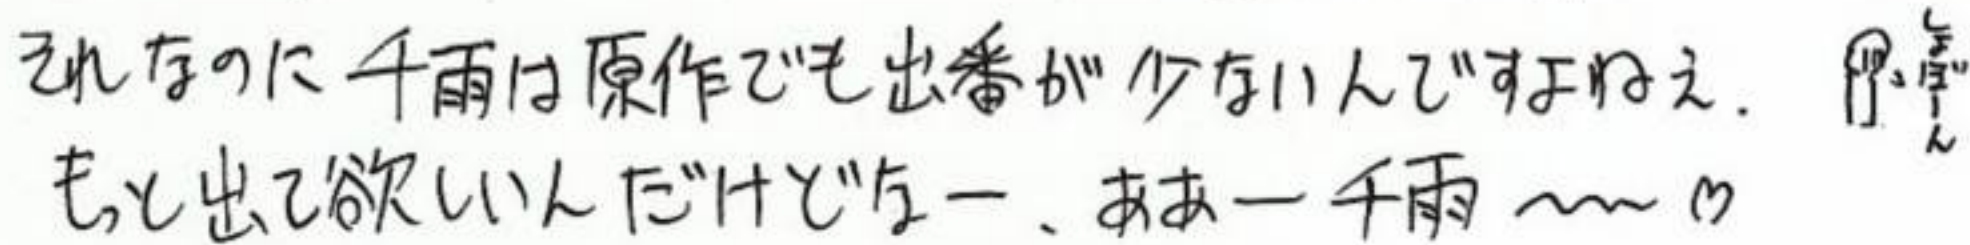 それなのに千雨は原作でも出番が少ないんですよねえ.
しょぼーん
もっと出て欲しいんだけどなー、ああー千雨〜〜♡